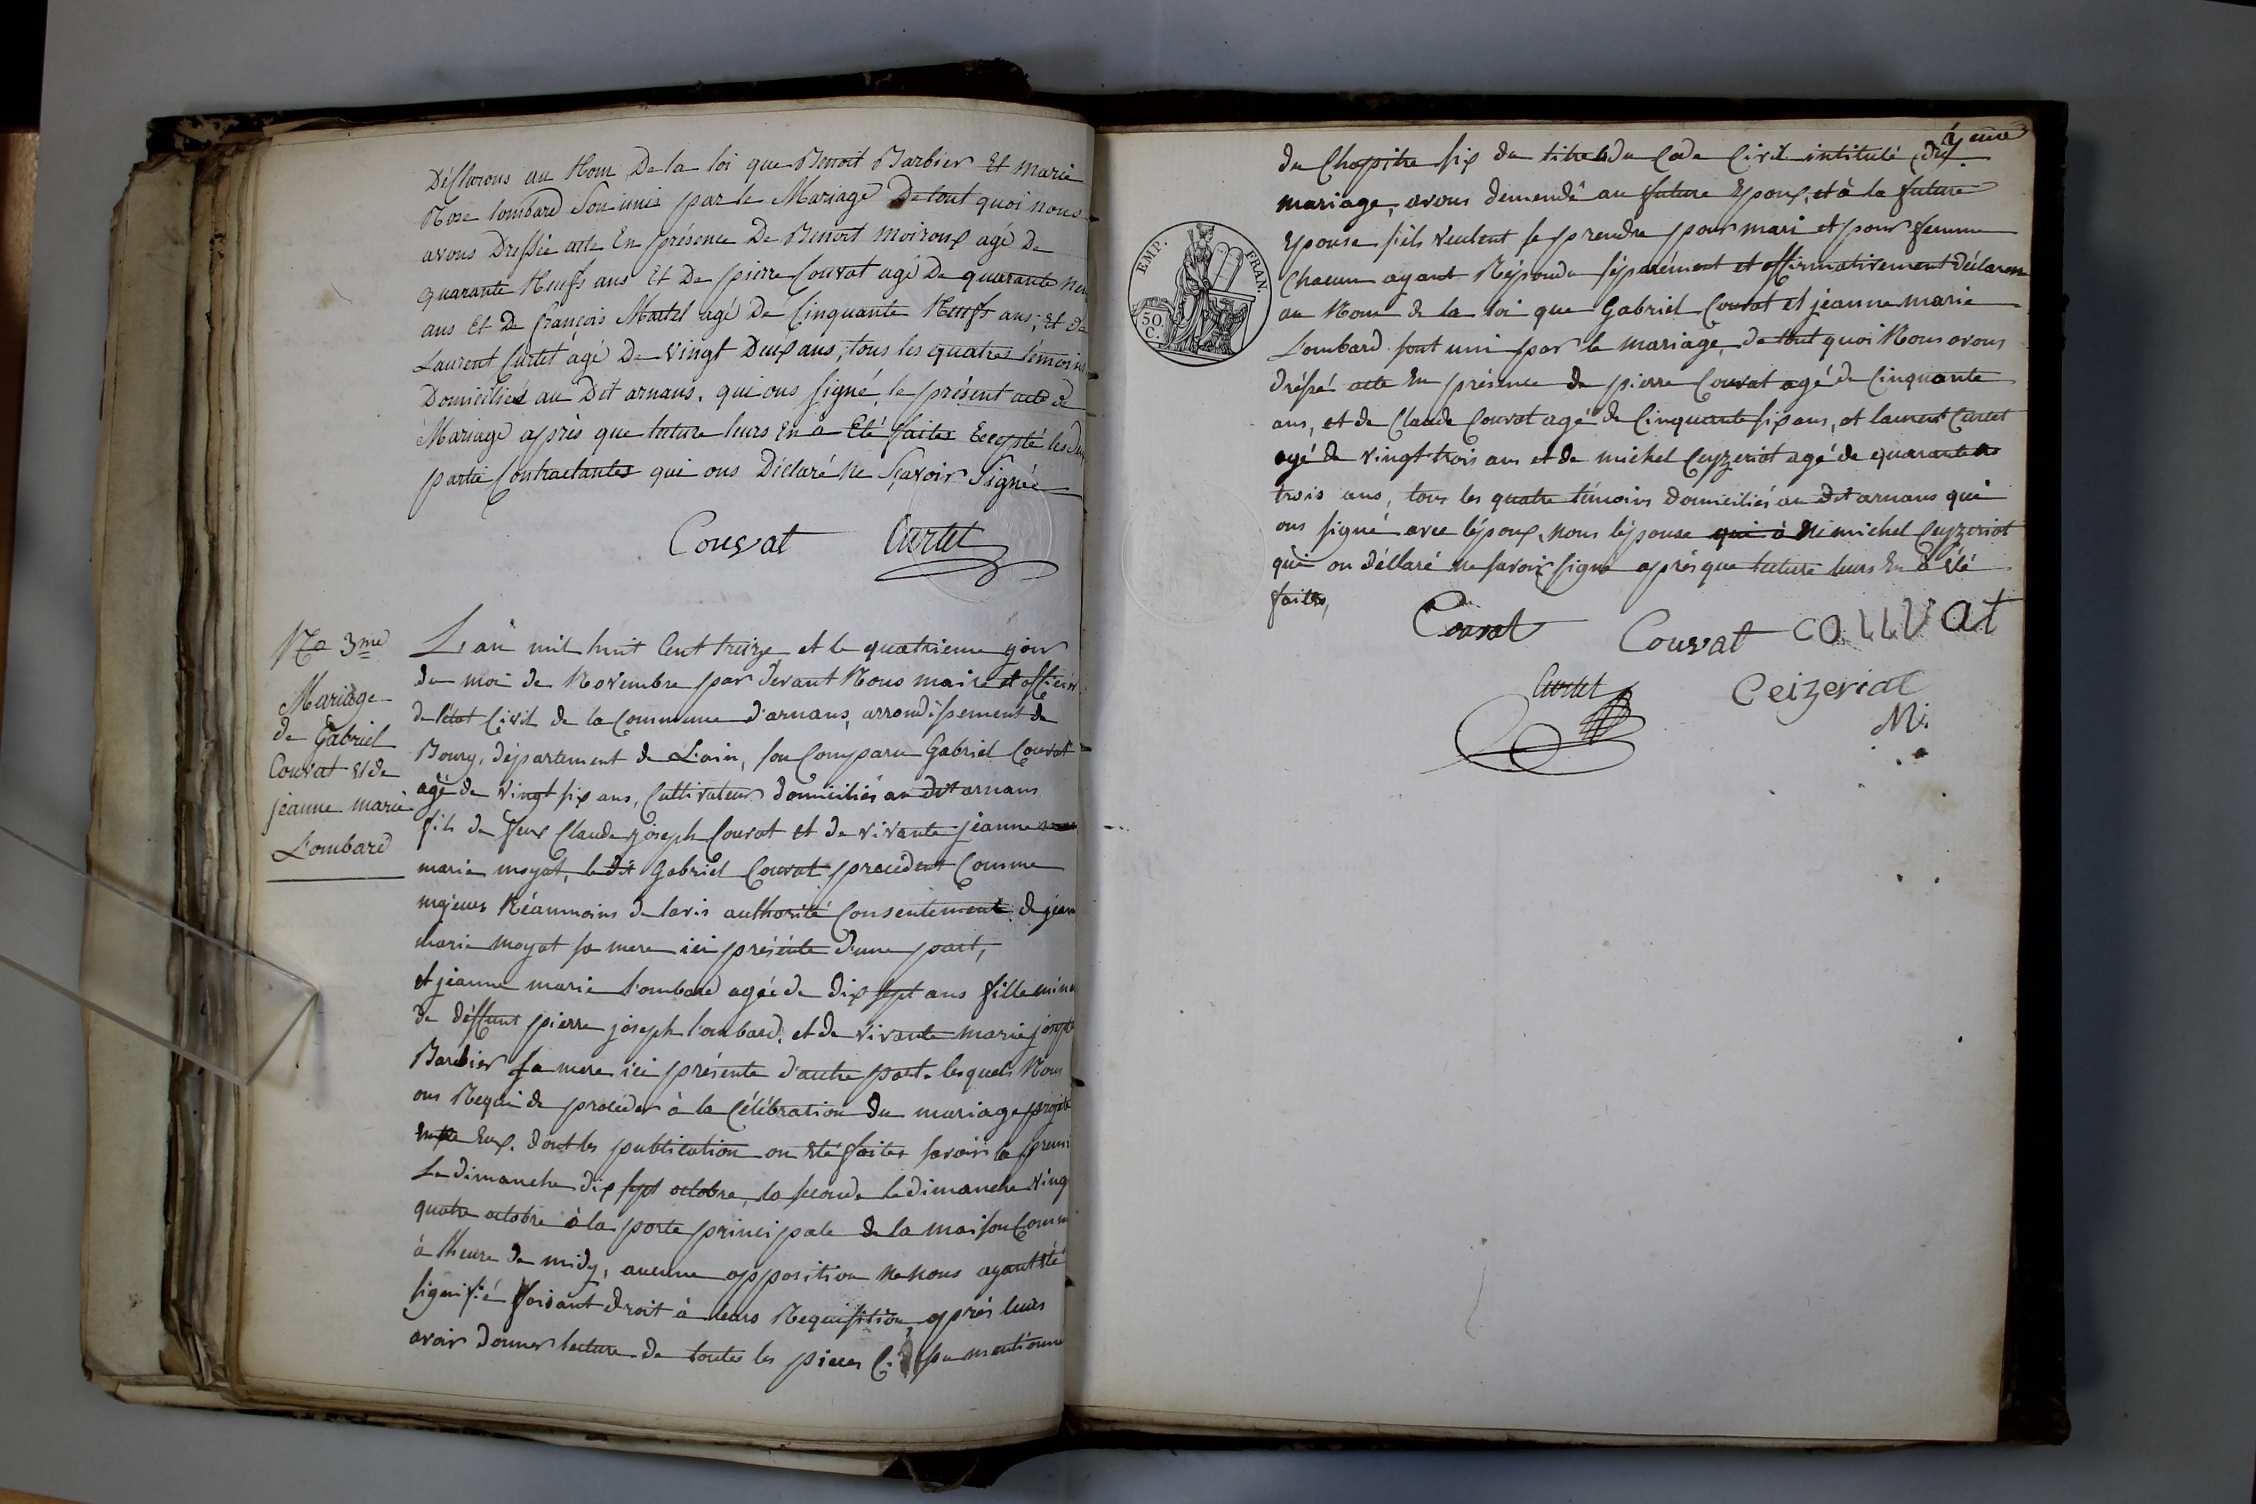 Désclarons au Nom De la loi que Benoit Barbier Et Marie
Rose lombard Son unis par le Mariage De tout quoi nous
avons Dressée acte En présence De Benoit Moiroux agé De
quarante Neufs ans Et De pierre Couvat agé De quarante neu
ans Et De françois Martel agé De Cinquante Neufs ans, Et de
Laurent Curtet agé De vingt Deux ans, tous les quatres témoins
Domiciliés au Dit arnans, qui ons signé le présent acte de
Mariage après que luture leurs En à Eté faites Excepté les deu
partie Contractantes qui ons Déclaré Ne Sçavoir Signée
Couvat Curtet
No 3me
Mariage
de Gabriel
Couvat et de
jeanne marie
Lombard
L'an mil huit Cent treize et le quatrieme jour
du moi de Novembre par devant Nous maire et officier
de létat Civil de la Commune d'arnans, arrondissement de
Bourg, département de L'ain, son Comparu Gabriel Couvat
agé de vingt six ans, Cultivateur domiciliés au dit arnans
fils de feux Claude joseph Couvat et de vivante jeanne
marie moyat, le dit Gabriel Couvat procédent Comme
majeur Néanmoins de lavis authorité Consentement de jean
marie moyat sa mere ici présente d'une part,
et jeanne marie Lombard agée de dix sept ans fille mine
de déffunt pierre joseph lombard, et de vivante marie joseph
Barbier sa mere ici présente d'autre part. lesquels Nous
ons Requi de procéder à la Célébration du mariage projeté
entre Eux. dont les publication on été faites savoir la premi
Le dimanche dix sept octobre, la seconde le dimanche ving
quatre octobre à la porte principale de la maison Comm
à lheure de midy, aucune opposition ne nous ayant été
signifié faisant droit à leurs Requisition, après leurs
avoir donner lecture de toutes les pieces Ci su mentionne
du Chapitre six du titre du Code Civil intitulé du
mariage, avons demendé au future Epoux, et à la future
Epouse s'ils veulent se prendre pour mari et pour femme
Chacun ayant Répondu séparément et affirmativement déclarons
au Nom de la loi que Gabriel Couvat et jeanne marie
Lombard sont uni par le mariage, de tout quoi Nous avons
dréssé acte En présence de pierre Couvat agé de Cinquante
ans, et de Claude Couvat agé de Cinquante six ans, et laurent Curtet
agé de vingt trois ans et de michel Ceyzeriat agé de quarante
trois ans, tous les quatre témoins domiciliés au dit arnans qui
ons signé avec lépoux, nons lépouse qui à Ni michel Ceyzeriat
qui on déllaré ne savoir signé après que luture leurs En à été
faites,
EMP. FRAN.
50 C.
Couvat Couvat COUVat
Curtet Ceizeriat
M.